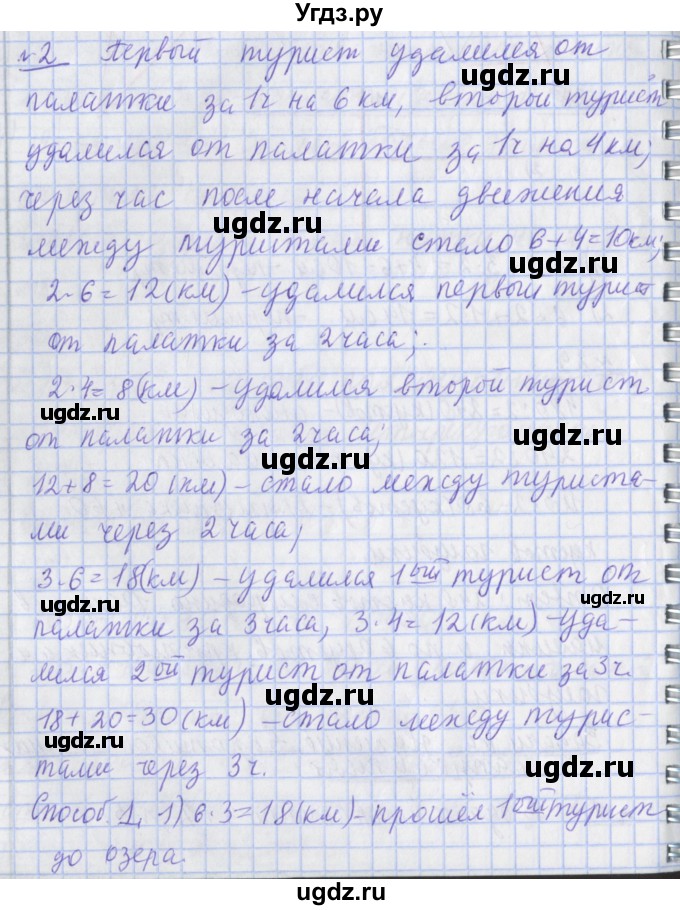 Угдз.ру
№2 Первый турист удалился от
ugdz.ru
палатки за 1ч на 6 км, второй турист
ugdz.ru
удалился от палатки за 1ч на 4км;
через час после начала движения
ugdz.ru
между туристами стало 6+4=10км;
ugdz.ru
2·6=12(км) – удалился первый турист
от палатки за 2 часа;
ugdz.ru
2·4=8(км) – удалился второй турист
ugdz.ru
от палатки за 2 часа;
ugdz.ru
12+8=20(км) – стало между туриста-
ми через 2 часа;
ugdz.ru
3·6=18(км) – удалился 1ый турист от
ugdz.ru
ugdz.ru
палатки за 3 часа, 3·4=12(км) – уда-
лился 2ой турист от палатки за 3ч.
ugdz.ru
18+20=30(км) – стало между турис-
ugdz.ru
тами через 3ч.
ugdz.ru
Способ 1. 1) 6·3=18(км) – прошёл 1ый турист
ugdz.ru
до озера.
ugdz.ru
ugdz.ru